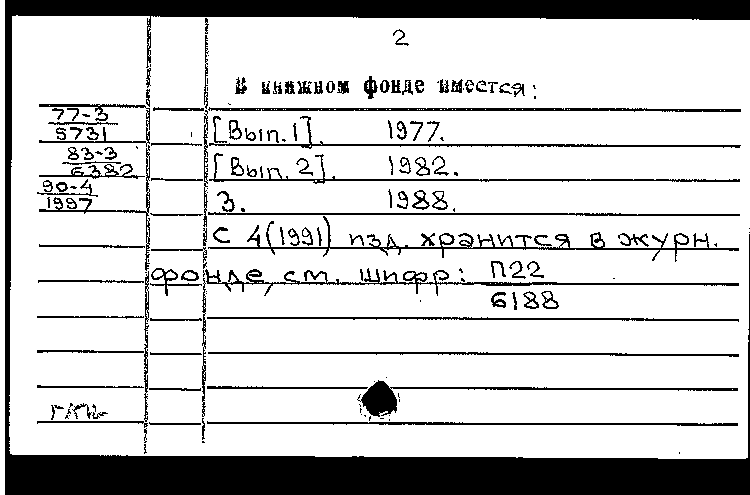 2
В книжном фонде имеется:
77-3
5731
[Вып. 1]. 1977.
83-3
6382
[Вып. 2]. 1982.
90-4
1997
3. 1988.
С 4(1991) изд. хранится в журн.
фонде, см. шифр: П22
6188